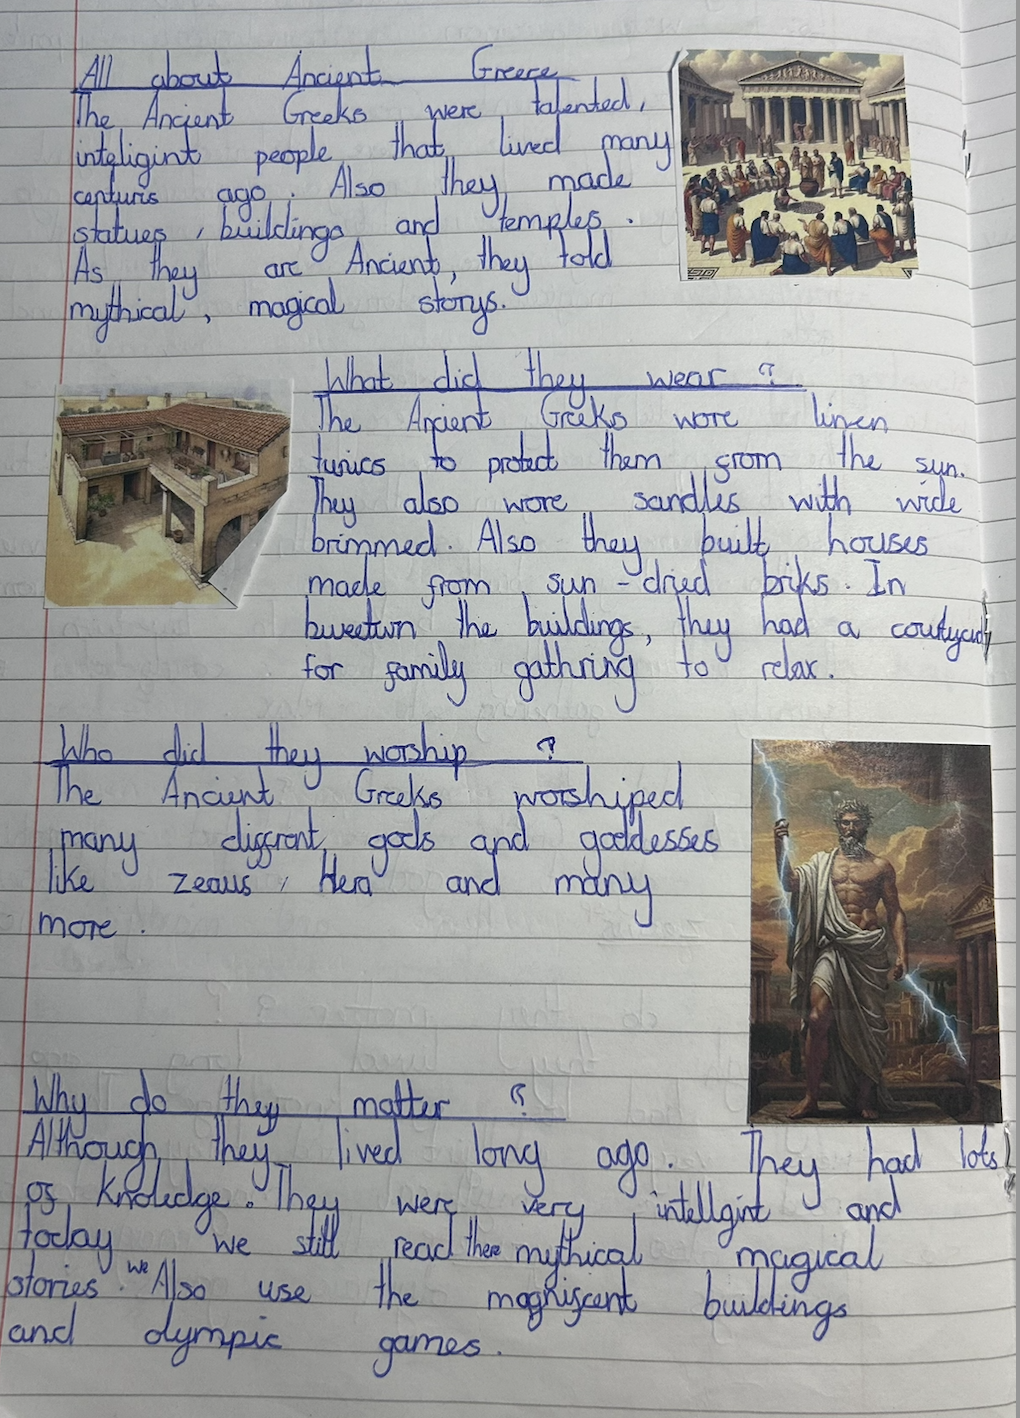 All about Ancient Greece
The Ancient Greeks were talented,
inteligint people that lived many
centuris ago. Also they made
statues, buildings and temples.
As they are Ancient, they told
mythical, magical storys.
What did they wear?
The Ancient Greeks wore linen
tunics to protect them from the sun.
They also wore sandles with wide
brimmed. Also they built houses
made from sun-dried briks. In
bweetwn the buildings, they had a
for family gathring to relax.
Who did they worship?
The Ancient Greeks worshiped
many diffront gods and goddesses
like zeaus, Hera and many
more.
Why do they matter?
Although they lived long ago. They had lots
of knoledge. They were very intellgint and
today we still read there mythical magical
stories. we Also use the magnifscent buildings
and olympic games.